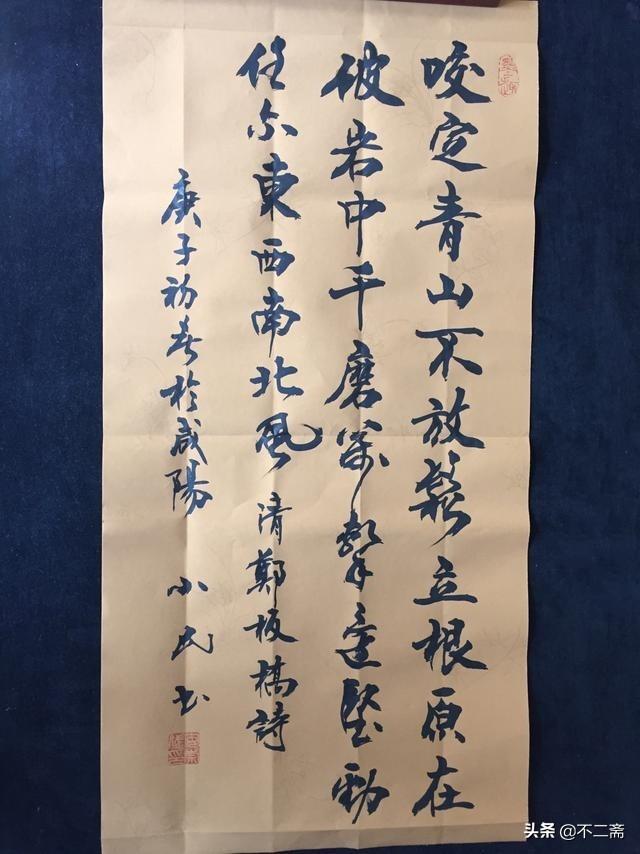 咬定青山不放鬆立根原在
破岩中千磨萬擊還堅勁
任尔東西南北風 清鄭板橋詩
庚子初春於咸陽 小民书
头条 @不二斋